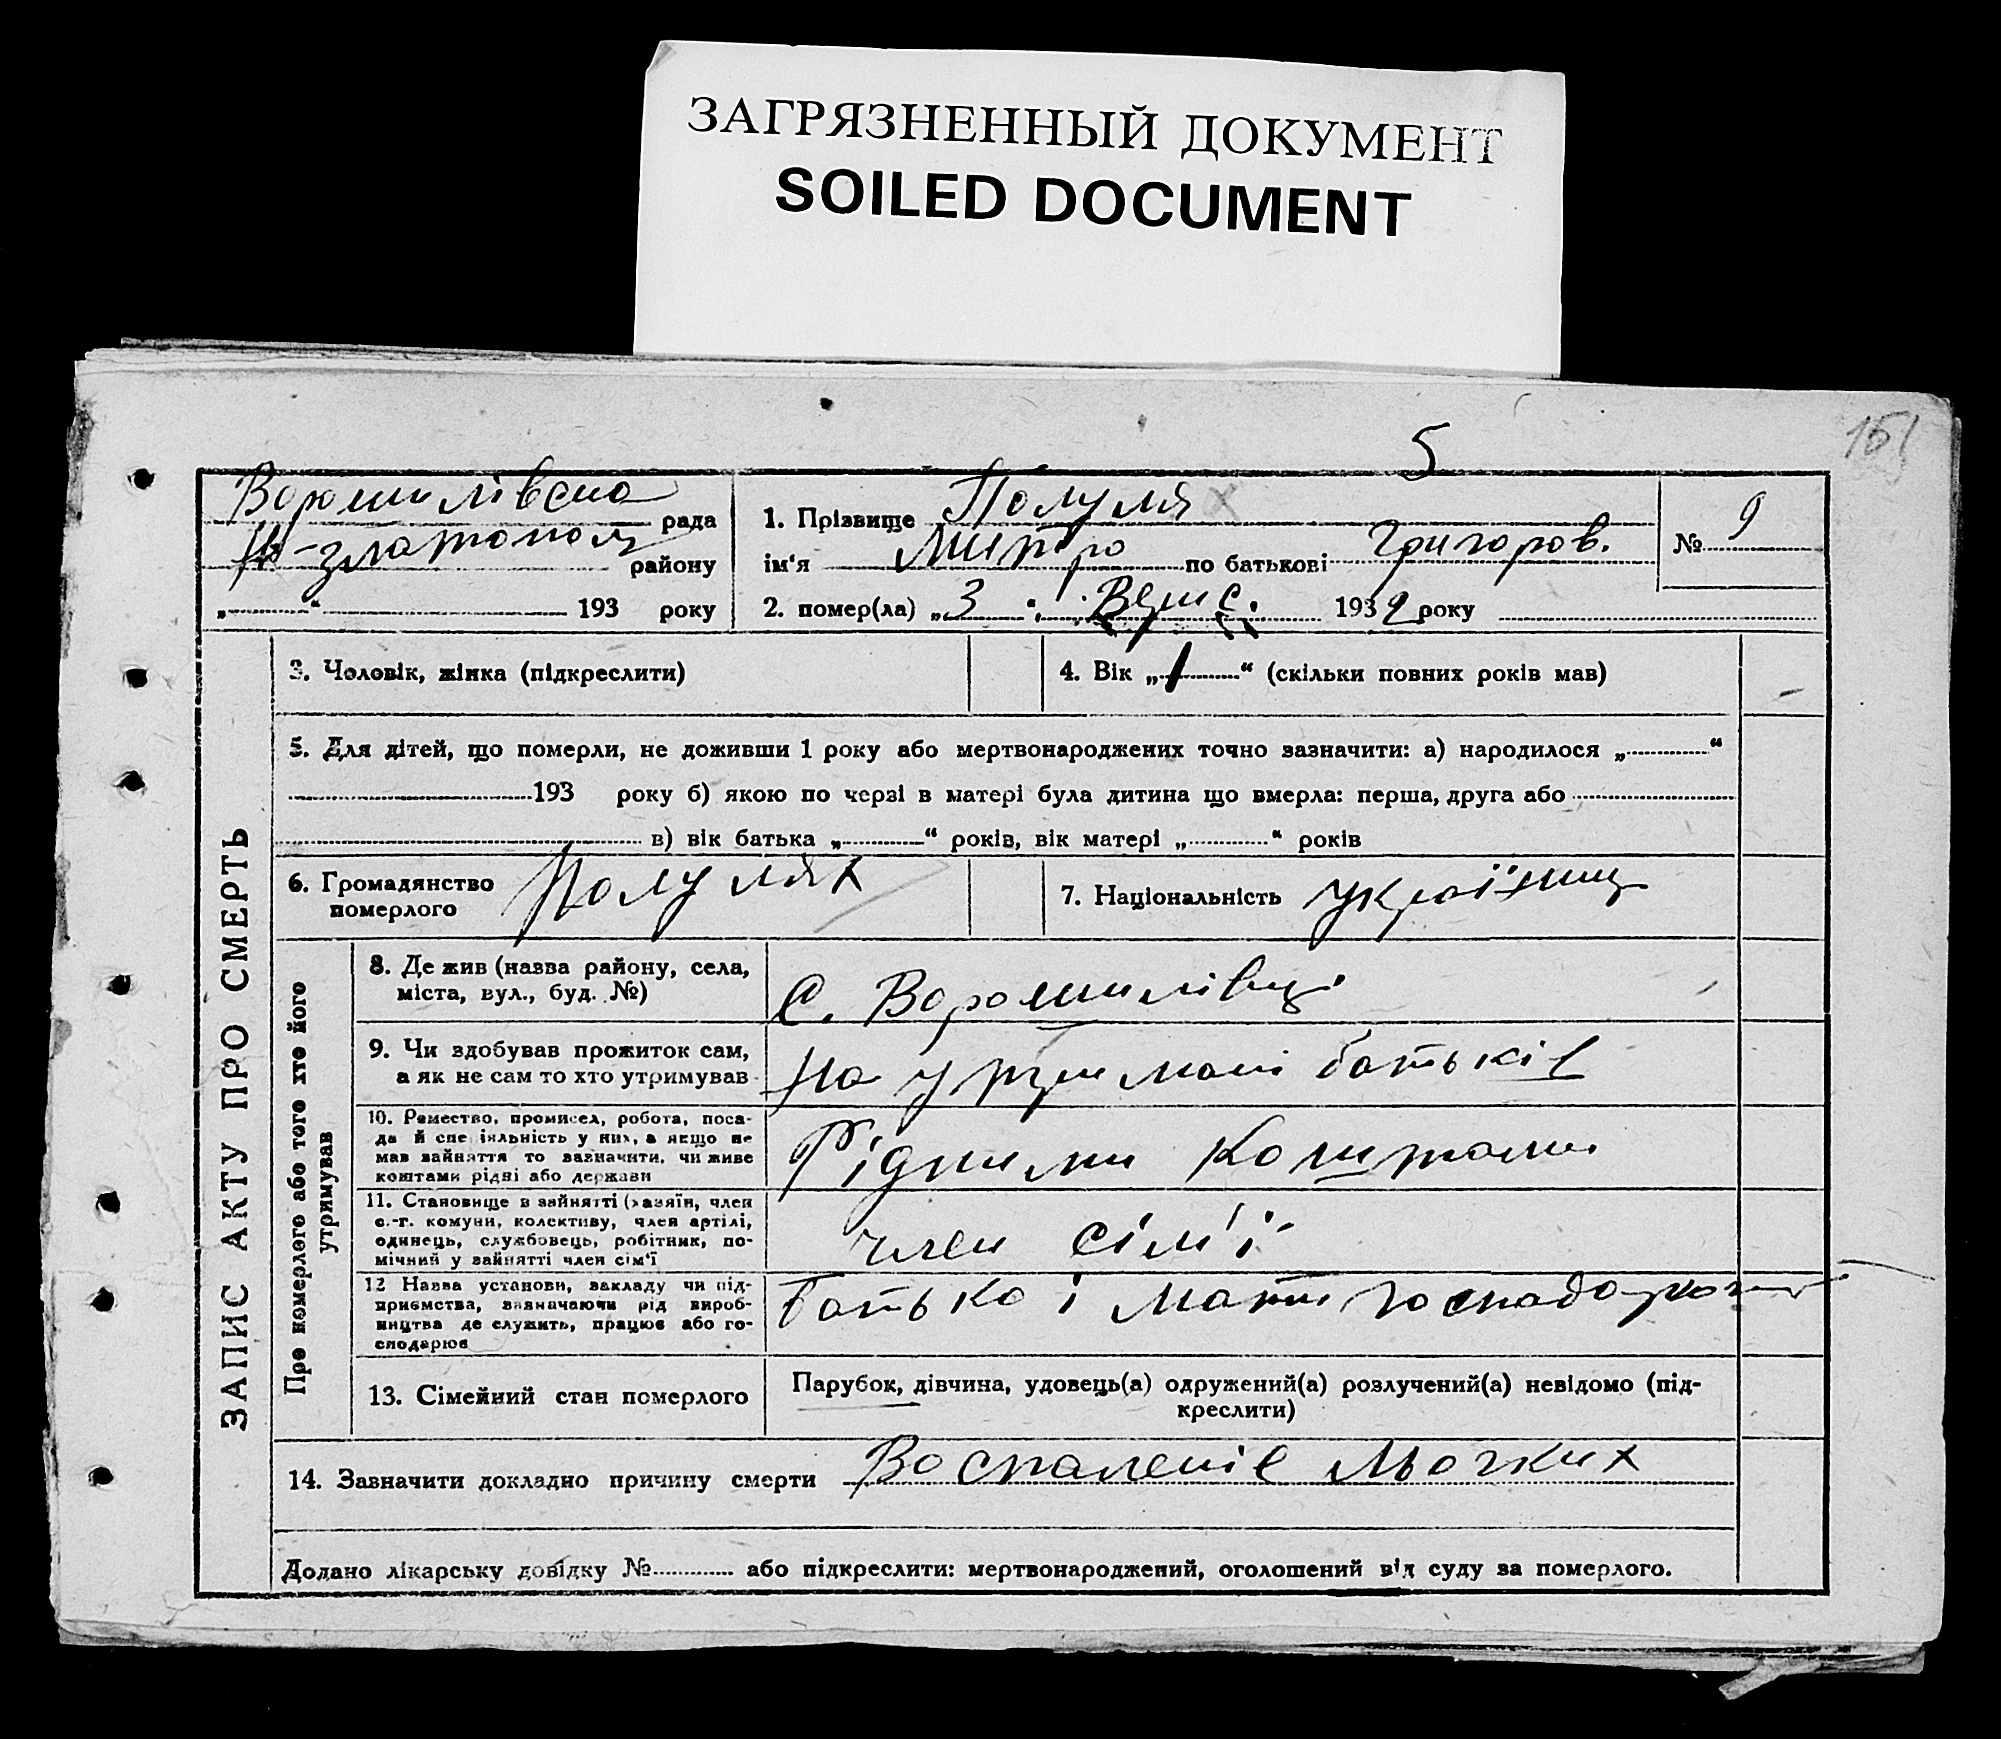 ЗАГРЯЗНЕННЫЙ ДОКУМЕНТ
SOILED DOCUMENT
5
Ворошилівська рада
Н-златопол району
„ “ 193 року
1. Прізвище Полулях
ім‘я Митро по батькові Григоров.
№ 9
2. помер(ла) „3“ Верес. 1932 року
ЗАПИС АКТУ ПРО СМЕРТЬ
3. Чоловік, жінка (підкреслити)
4. Вік „1“ (скільки повних років мав)
5. Для дітей, що померли, не доживши 1 року або мертвонароджених точно зазначити: а) народилося „ “
193 року б) якою по черзі в матері була дитина що вмерла: перша, друга або
в) вік батька „ “ років, вік матері „ “ років
6. Громадянство
померлого
Полулях
7. Національність українц
Про померлого або того хто його
утримував
8. Де жив (назва району, села,
міста, вул., буд. №)
С. Ворошилівці
9. Чи здобував прожиток сам,
а як не сам то хто утримував
На утримані батьків
10. Ремество, промисел, робота, поса-
да й спеціяльність у них, а якщо не
мав зайняття то зазначити, чи живе
коштами рідні або держави
Рідними коштами
11. Становище в зайнятті (хазяїн, член
с.-г. комуни, колективу, член артілі,
одинець, службовець, робітник, по-
мічний у зайнятті член сім‘ї
член сім'ї
12 Назва установи, закладу чи під-
приємства, зазначаючи рід вироб-
ництва де служить, працює або го-
сподарює
батько і мати
13. Сімейний стан померлого
Парубок, дівчина, удовець(а) одружений(а) розлучений(а) невідомо (під-
креслити)
14. Зазначити докладно причину смерти Воспаленіе льогких
Додано лікарську довідку № або підкреслити: мертвонароджений, оголошений від суду за померлого.